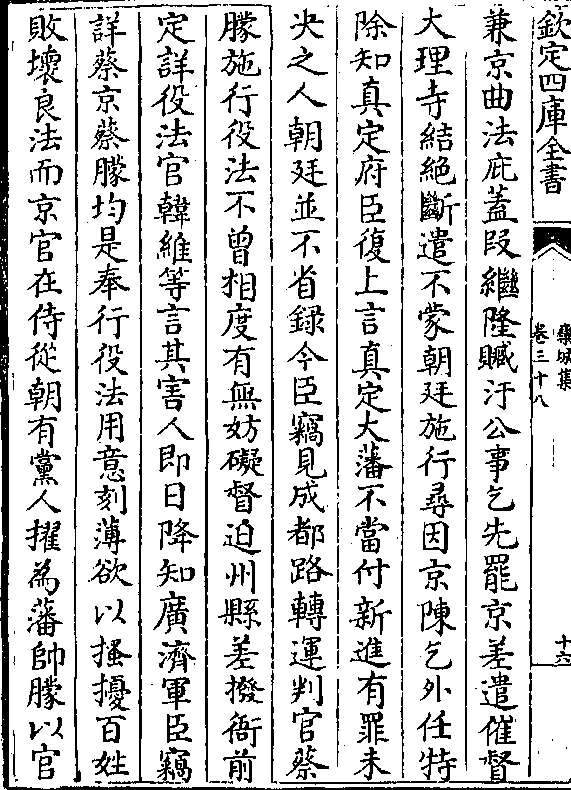 欽定四庫全書
欒城集
卷三十八
十六
兼京曲法庇蓋段繼隆贓汙公事乞先罷京差遣催督
大理寺結絶斷遣不蒙朝廷施行尋因京陳乞外任特
除知真定府臣復上言真定大藩不當付新進有罪未
决之人朝廷並不省録今臣竊見成都路轉運判官蔡
朦施行役法不曾相度有無妨礙督迫州縣差撥衙前
定詳役法官韓維等言其害人即日降知廣濟軍臣竊
詳蔡京蔡朦均是奉行役法用意刻薄欲以搔擾百姓
敗壞良法而京官在侍從朝有黨人擢為藩帥朦以官